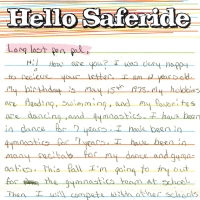 Hello Saferide
Long lost pen pal,
Hi! How are you? I was very happy
to recieve your letter. I am 12 years old.
My birthday is May 15th 1978. my hobbies
are Reading, swimming, and my favorites
are dancing, and gymnastics. I have been
in dance for 7 years. I have been in
gymnastics for 7 years. I have been in
many recitals for my dance and gymn-
astics. This fall I'm going to try out
for the gymnastics team at school.
Then I will compete with other schools